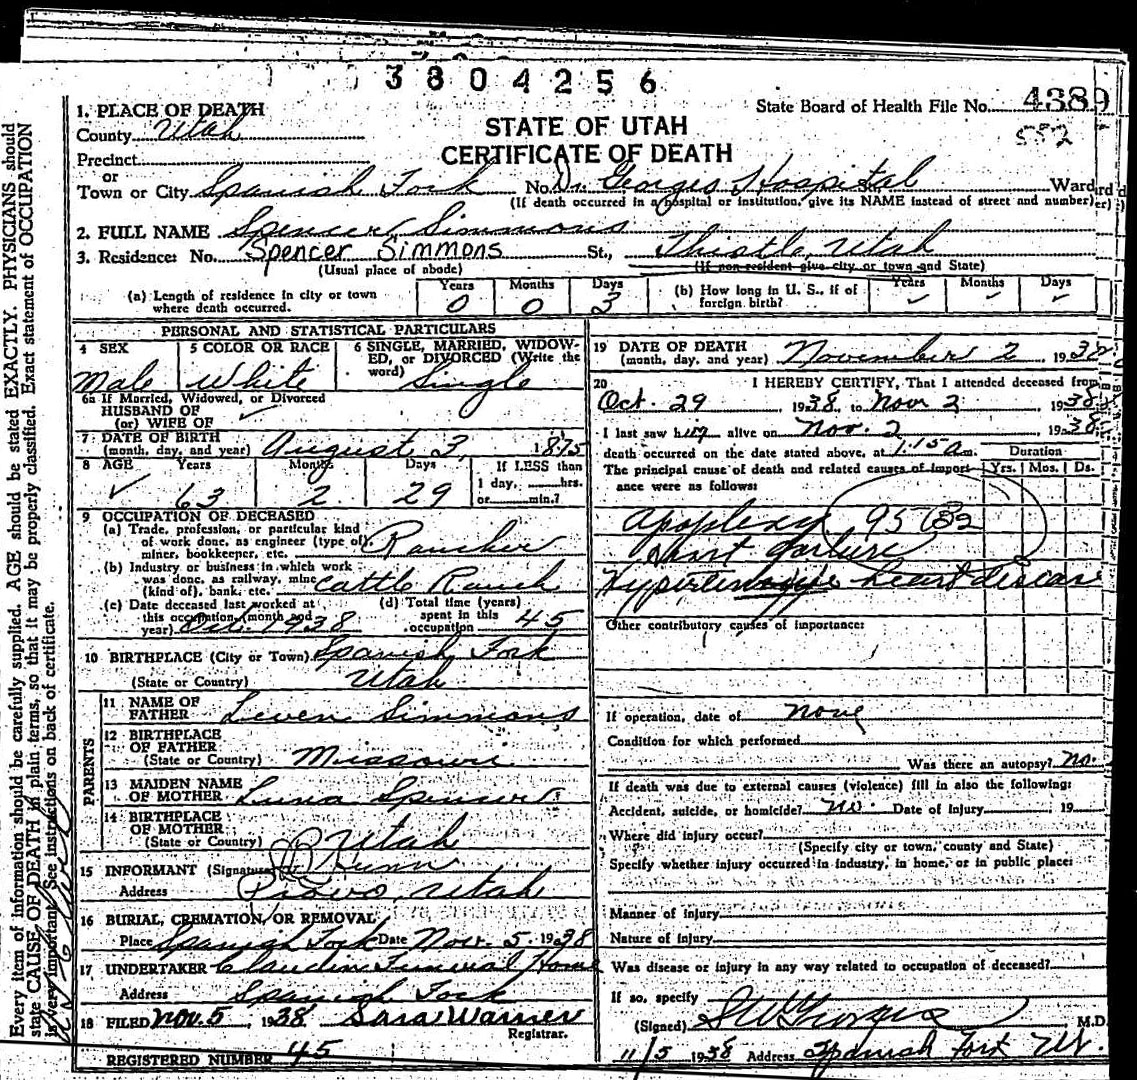 3804256
1. PLACE OF DEATH
State Board of Health File No. 4389
County Utah
STATE OF UTAH
552
Precinct
CERTIFICATE OF DEATH
or
Town or City Spanish Fork No. Dr. Georges Hospital Ward
(If death occurred in a hospital or institution, give its NAME instead of street and number)
2. FULL NAME Spencer Simmons
3. Residence: No. Spencer Simmons St., Thistle, Utah
(Usual place of abode) (If non-resident give city or town and State)
(a) Length of residence in city or town where death occurred. Years 0 Months 0 Days 3
(b) How long in U. S., if of foreign birth? Years ✓ Months ✓ Days ✓
PERSONAL AND STATISTICAL PARTICULARS
4 SEX Male
5 COLOR OR RACE White
6 SINGLE, MARRIED, WIDOWED, or DIVORCED (Write the word) Single
6a If Married, Widowed, or Divorced
HUSBAND OF ✓
(or) WIFE OF
7 DATE OF BIRTH
(month, day, and year) August 3, 1875
8 AGE Years Months Days If LESS than
✓ 63 2 29 1 day, hrs.
or min.?
9 OCCUPATION OF DECEASED
(a) Trade, profession, or particular kind
of work done, as engineer (type of),
miner, bookkeeper, etc. Rancher
(b) Industry or business in which work
was done, as railway, mine
(kind of), bank, etc. Cattle Ranch
(c) Date deceased last worked at
this occupation (month and
year) Oct. 1938
(d) Total time (years)
spent in this
occupation 45
10 BIRTHPLACE (City or Town) Spanish Fork
(State or Country) Utah
PARENTS
11 NAME OF
FATHER Leven Simmons
12 BIRTHPLACE
OF FATHER
(State or Country) Missouri
13 MAIDEN NAME
OF MOTHER Luna Spencer
14 BIRTHPLACE
OF MOTHER
(State or Country) Utah
15 INFORMANT (Signature)
Address Provo, Utah
16 BURIAL, CREMATION, OR REMOVAL
Place Spanish Fork Date Nov. 5. 1938
17 UNDERTAKER Claudin Funeral Home
Address Spanish Fork
18 FILED Nov. 5, 1938 Sara Warner
Registrar.
REGISTERED NUMBER 45
19 DATE OF DEATH
(month, day, and year) November 2 1938
20 I HEREBY CERTIFY, That I attended deceased from
Oct. 29 1938, to Nov 2 1938
I last saw him alive on Nov. 2 1938
death occurred on the date stated above, at 1.15 a m.
Duration
The principal cause of death and related causes of importance were as follows: Yrs. Mos. Ds.
Apoplexy 95 B2
Heart failure
heart disease
Other contributory causes of importance:
If operation, date of none
Condition for which performed
Was there an autopsy? no.
If death was due to external causes (violence) fill in also the following:
Accident, suicide, or homicide? no. Date of injury 19
Where did injury occur?
(Specify city or town, county and State)
Specify whether injury occurred in industry, in home, or in public place:
Manner of injury
Nature of injury
Was disease or injury in any way related to occupation of deceased?
If so, specify
(Signed) Georges M.D.
11/5 1938 Address Spanish Fork Ut.
Every item of information should be carefully supplied. AGE should be stated EXACTLY. PHYSICIANS should
state CAUSE OF DEATH in plain terms, so that it may be properly classified. Exact statement of OCCUPATION
is very important. See instructions on back of certificate.